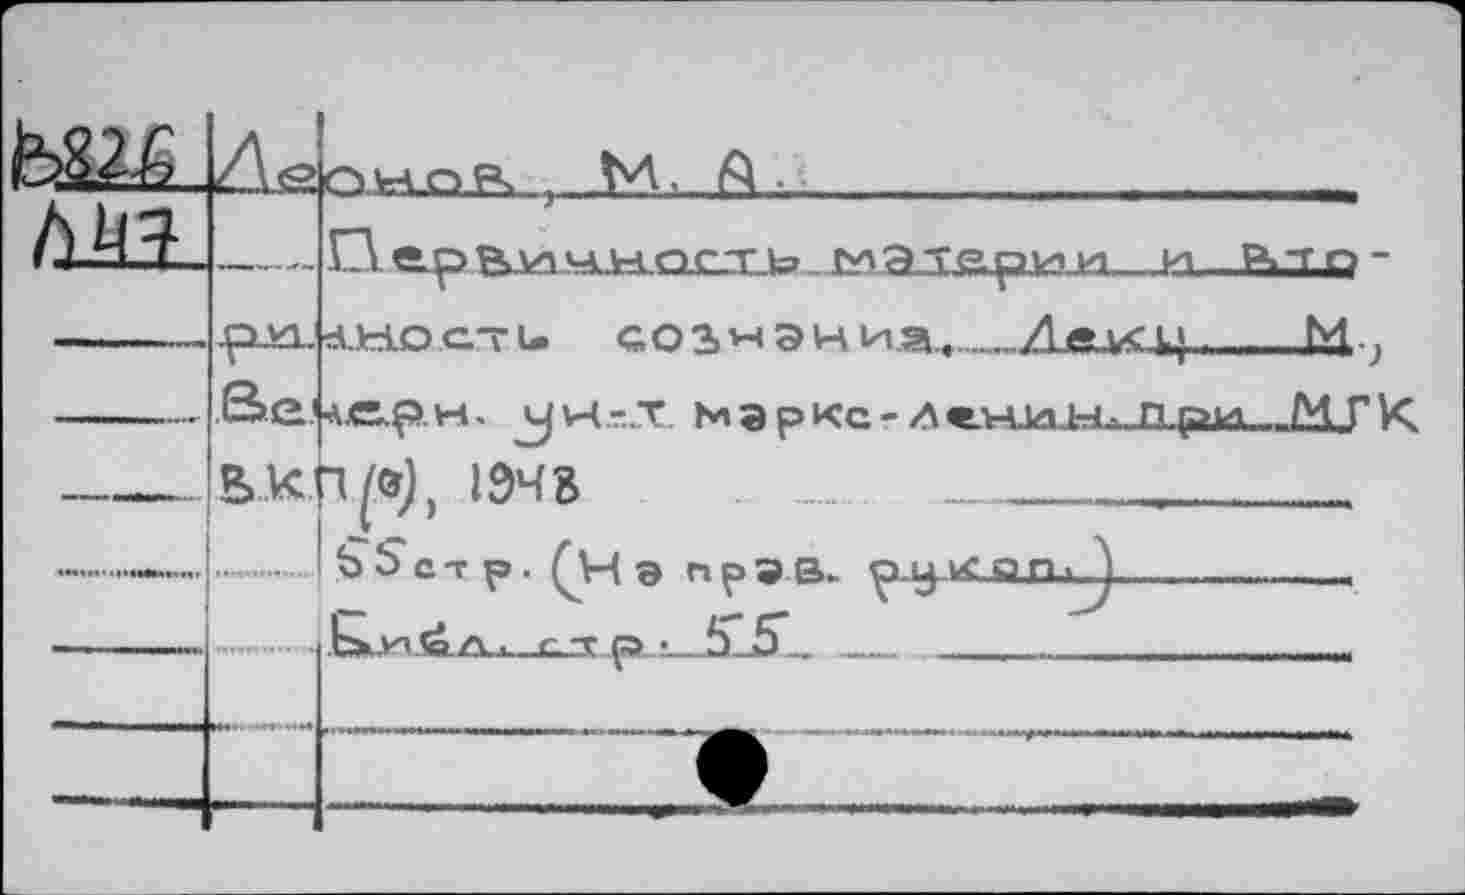 Б826 Леонов, М. А.
Л47 Первичность материи и вто-
ричность сознания. Лекц. М.,
Вечерн. ун-т маркс-ленин. при МГК
ВКП(б), 1948
55стр. (На прав. рукоп.)
Библ. стр. 55